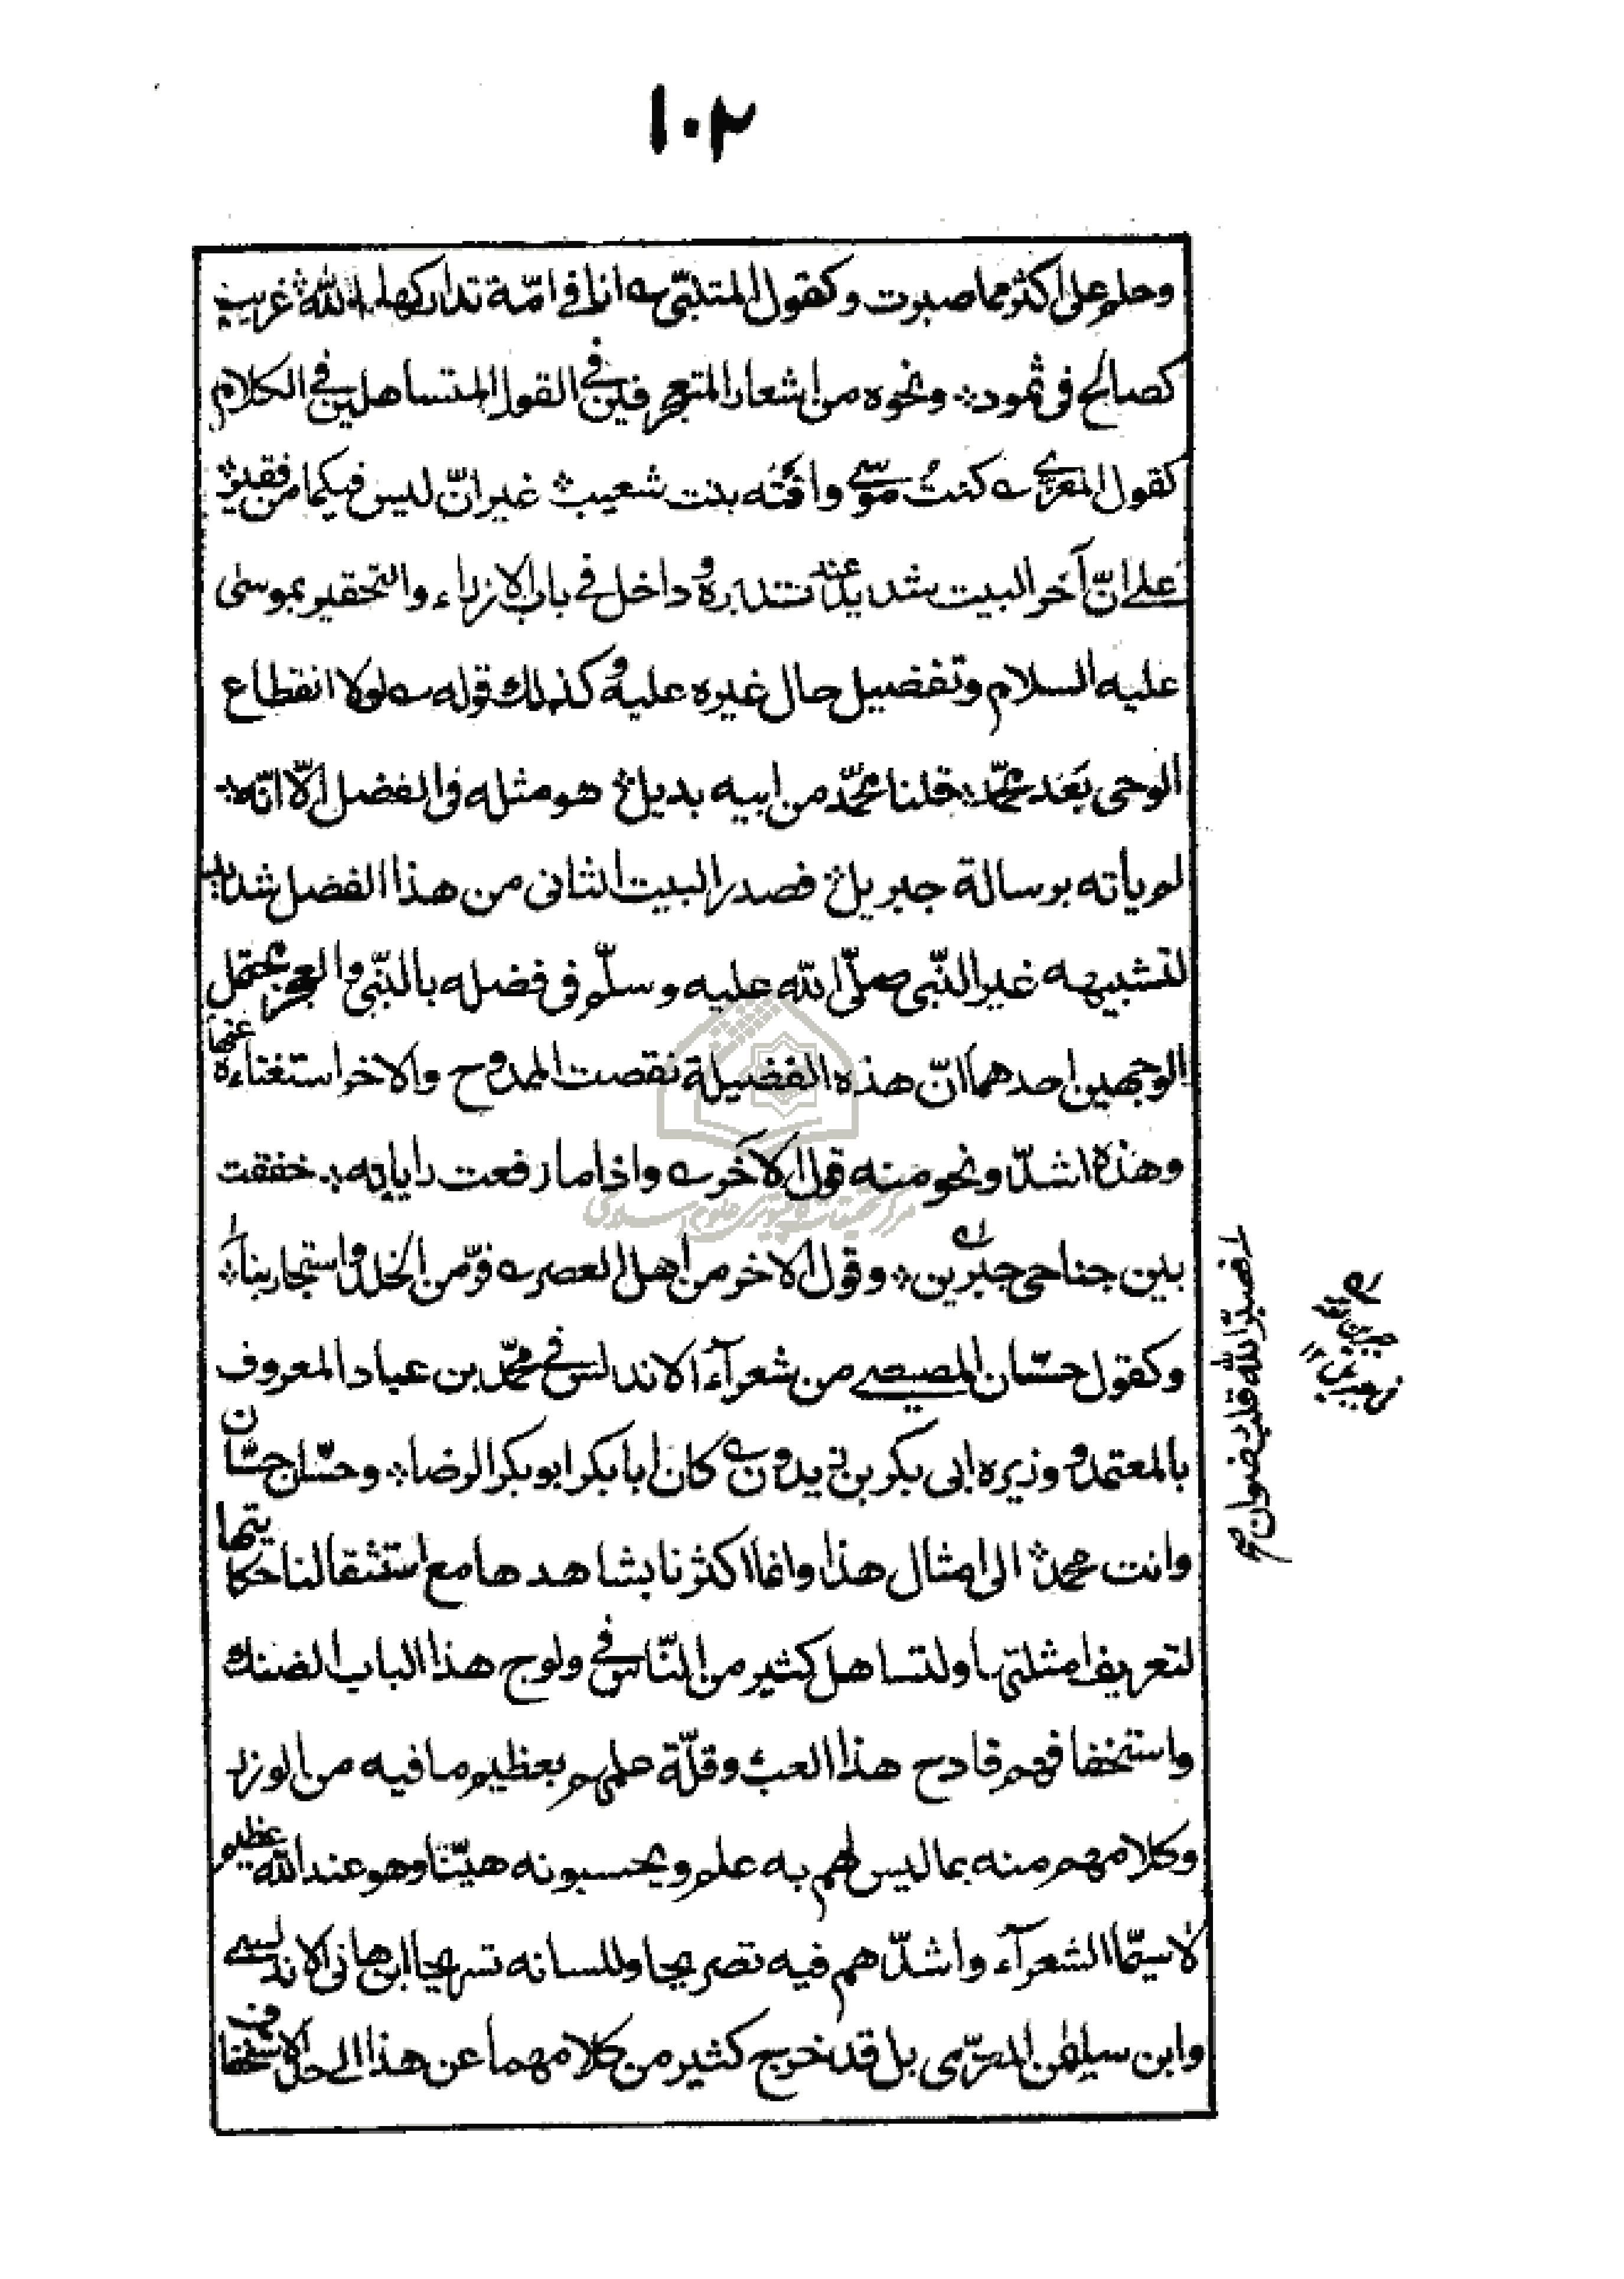 ١٠٢
وحلم على اكثر مما صبرت وكقول المتنبّي ے انا في امّة تداركها الله ؞ غريب
كصالح في ثمود ؞ ونحوه من اشعار المتعجرفين في القول المتساهلين في الكلام
كقول المعرّي ے كنت موسى وافته بنت شعيب ؞ غير انّ ليس فيكما من فقير ؞
على انّ آخر البيت شديد عند تدبره و داخل في باب الازراء والتحقير بموسى
عليه السلام وتفضيل حال غيره عليه و كذلك قوله ے لولا انقطاع
الوحى بَعَد محمّد ؞ قلنا محمّد من ابيه بديل ؞ هو مثله في الفضل الّا انّه ؞
لم ياته برسالة جبريل ؞ فصدر البيت الثانى من هذا الفضل شديد
لتشبيهه غير النّبى صلّى الله عليه وسلّم في فضله بالنّبى والعجز محتمل
الوجهين احدهما انّ هذه الفضيلة نقصت الممدوح والاخر استغناءه عنها
وهذه اشدّ ونحو منه قول الآخر ے واذا ما رفعت راياته ؞ خفقت
بين جناحي جبرين ؞ وقول الاخر من اهل العصر ے فرّ من الخلد واستجار بنا ؞
وكقول حسّان المصيصي من شعرآء الاندلس في محمّد بن عباد المعروف
بالمعتمد و وزيره ابى بكر بن زيدون ے كان ابا بكر ابو بكر الرضا ؞ وحسّان حسّان
وانت محمد ؞ الى امثال هذا وانما اكثرنا بشاهدها مع استثقالنا حكايتها
لتعريف امثلتها ولتساهل كثير من النّاس في ولوج هذا الباب الضنك
واستخفافهم فادح هذا العبء وقلّة علمهم بعظيم ما فيه من الوزر
وكلامهم منه بما ليس لهم به علم ويحسبونه هيّنا وهو عند الله عظيم
لا سيّما الشعرآء واشدّهم فيه تصريحا وللسانه تسريحا ابن هانى الاندلسي
وابن سليمٰن المعرّى بل قد خرج كثير من كلامهما عن هذا الى حد الاستخفاف
فصبّر الله قلب رضوان صح